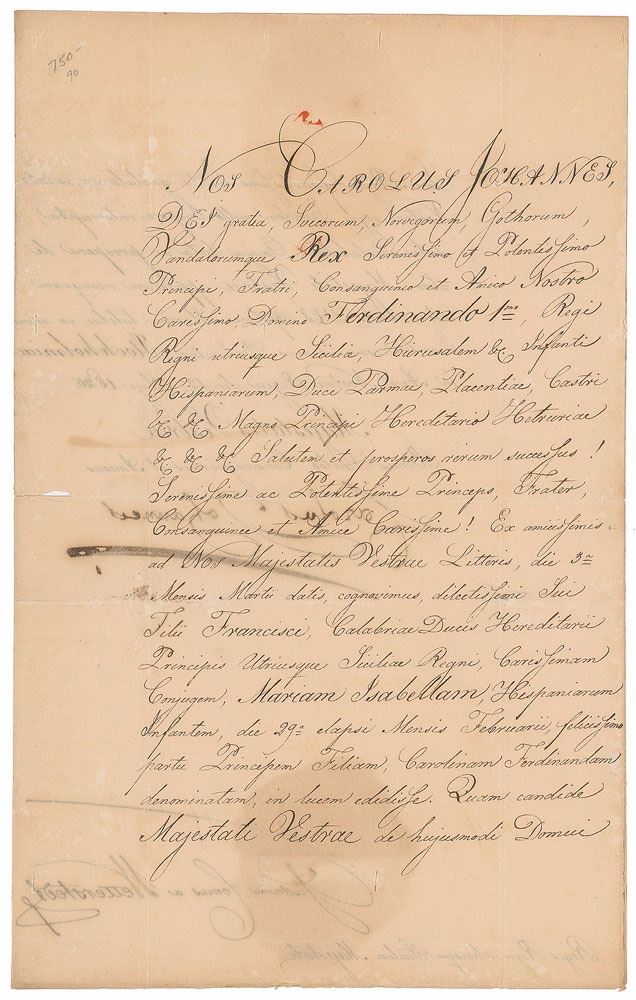 750-
90
NOS CAROLUS JOHANNES,
DEI gratia, Suecorum, Norvegorum, Gothorum,
Vandalorumque Rex Serenissimo et Potentissimo
Principi, Fratri, Consanguineo et Amico Nostro
Carissimo, Domino Ferdinando 1mo, Regi
Regni utriusque Siciliæ, Hierusalem &c Infanti
Hispaniarum, Duci Parmae, Placentiae, Castri
&c &c Magno Principi Hereditario Hetruriae
&c &c &c Salutem et prosperos rerum successus!
Serenissime ac Potentissime Princeps, Frater,
Consanguinee et Amice Carissime! Ex amicissimis
ad Nos Majestatis Vestrae Litteris, die 3a
Mensis Martii datis, cognovimus, dilectissimi Sui
Filii Francisci, Calabriae Ducis Hereditarii
Principis Utriusque Siciliae Regni, Carissimam
Conjugem, Mariam Isabellam, Hispaniarum
Infantem, die 29a elapsi Mensis Februarii, felicissimo
partu Principem Filiam, Carolinam Ferdinandam
denominatam, in lucem edidisse. Quam candide
Majestati Vestrae de hujusmodi Domui